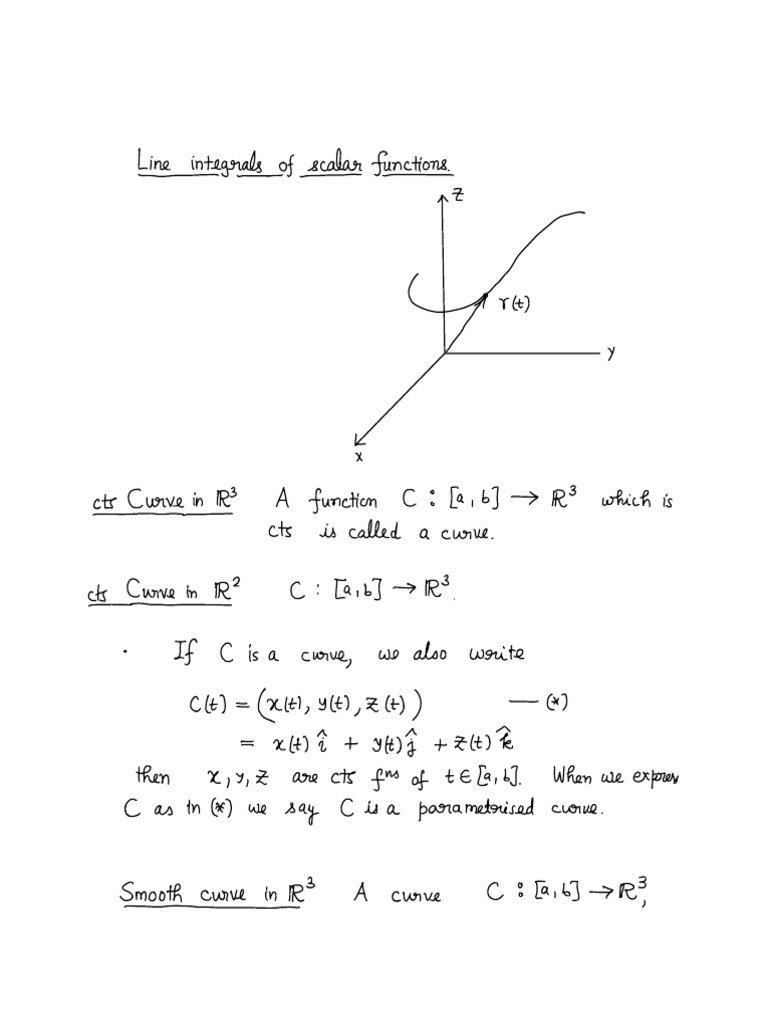 Line integrals of scalar functions.
z
r(t)
y
x
cts Curve in ℝ³ A function C : [a, b] → ℝ³ which is
cts is called a curve.
cts Curve in ℝ² C : [a, b] → ℝ³.
· If C is a curve, we also write
C(t) = (x(t), y(t), z(t)) — (*)
= x(t) î + y(t) ĵ + z(t) k̂
then x, y, z are cts fⁿˢ of t ∈ [a, b]. When we expres
C as in (*) we say C is a parametrised curve.
Smooth curve in ℝ³ A curve C : [a, b] → ℝ³,